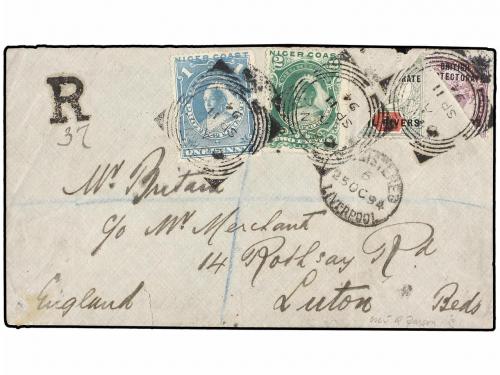 R
37
NIGER COAST
1
ONE PENNY
NIGER COAST
RATE
L RIVERS
BRITISH
PROTECTORATE
SP 11 94
REGISTERED
6
25 OC 94
LIVERPOOL
Mr Britain
c/o Mr Merchant
14 Rothsay Rd
England Luton Beds